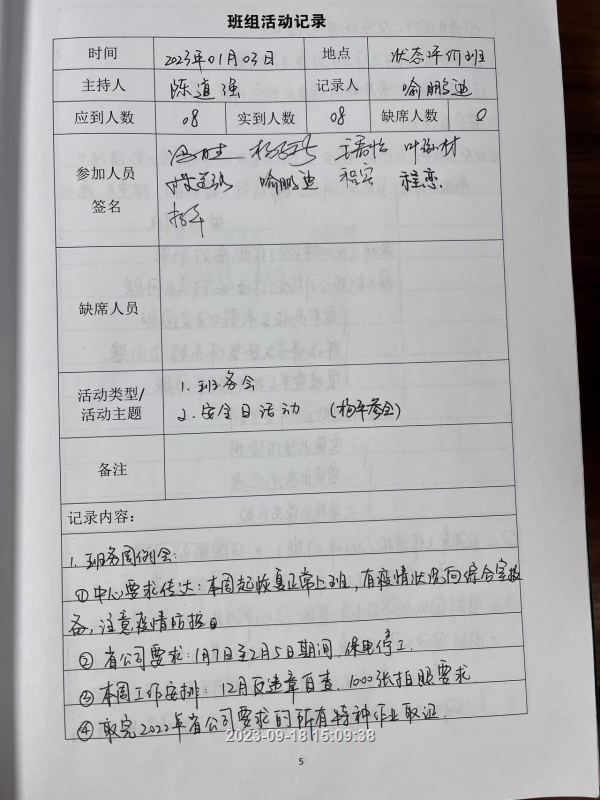 班组活动记录
时间 2023年01月03日 地点 状态评价班
主持人 陈道强 记录人 喻鹏迪
应到人数 08 实到人数 08 缺席人数 0
参加人员
签名
喻鹏迪 程实 程恋
杨平
缺席人员
活动类型/
活动主题
1. 班务会
2. 安全日活动 (杨平参会)
备注
记录内容:
1. 班务周例会:
①中心要求传达: 本周起恢复正常上班, 有疫情状况向综合室报
备, 注意疫情防控
② 省公司要求: 1月7日至2月5日期间, 保电停工.
③ 本周工作安排: 12月反违章自查. 1000张拍照要求.
④ 取完2022年省公司要求的所有特种作业取证.
2023-09-18 15:09:38
5